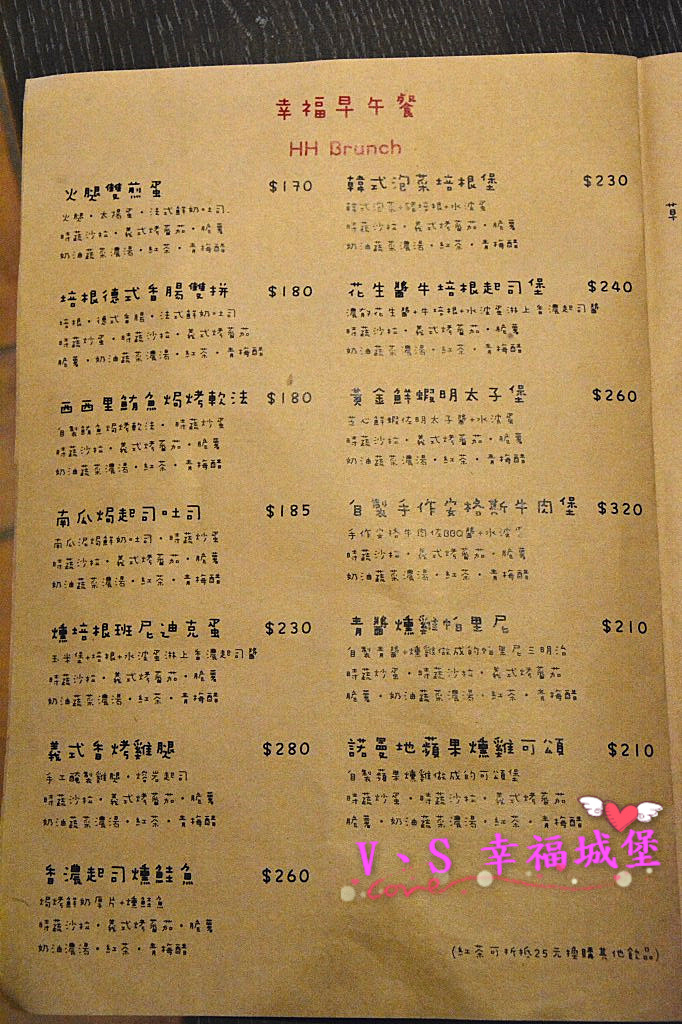 幸福早午餐
HH Brunch
火腿雙煎蛋 $170
火腿・太陽蛋・法式鮮奶吐司
時蔬沙拉・義式烤蕃茄・脆薯
奶油蔬菜濃湯・紅茶・青梅醋
培根德式香腸雙拼 $180
培根・德式香腸・法式鮮奶吐司
時蔬炒蛋・時蔬沙拉・義式烤蕃茄
脆薯・奶油蔬菜濃湯・紅茶・青梅醋
西西里鮪魚焗烤軟法 $180
自製鮪魚焗烤軟法・時蔬炒蛋
時蔬沙拉・義式烤蕃茄・脆薯
奶油蔬菜濃湯・紅茶・青梅醋
南瓜焗起司吐司 $185
南瓜泥焗鮮奶吐司・時蔬炒蛋
時蔬沙拉・義式烤蕃茄・脆薯
奶油蔬菜濃湯・紅茶・青梅醋
燻培根班尼迪克蛋 $230
玉米堡+培根+水波蛋淋上香濃起司醬
時蔬沙拉・義式烤蕃茄・脆薯
奶油蔬菜濃湯・紅茶・青梅醋
義式香烤雞腿 $280
手工醃製雞腿・焙岩起司
時蔬沙拉・義式烤蕃茄・脆薯
奶油蔬菜濃湯・紅茶・青梅醋
香濃起司燻鮭魚 $260
焗烤鮮奶厚片+燻鮭魚
時蔬沙拉・義式烤蕃茄・脆薯
奶油濃湯・紅茶・青梅醋
韓式泡菜培根堡 $230
韓式泡菜+豬培根+水波蛋
時蔬沙拉・義式烤蕃茄・脆薯
奶油蔬菜濃湯・紅茶・青梅醋
花生醬牛培根起司堡 $240
濃郁花生醬+牛培根+水波蛋淋上香濃起司醬
時蔬沙拉・義式烤蕃茄・脆薯
奶油蔬菜濃湯・紅茶・青梅醋
黃金鮮蝦明太子堡 $260
苦心鮮蝦佐明太子醬+水波蛋
時蔬沙拉・義式烤蕃茄・脆薯
奶油蔬菜濃湯・紅茶・青梅醋
自製手作安格斯牛肉堡 $320
手作安格牛肉佐BBQ醬+水波蛋
時蔬沙拉・義式烤蕃茄・脆薯
奶油蔬菜濃湯・紅茶・青梅醋
青醬燻雞帕里尼 $210
自製青醬+燻雞做成的帕里尼三明治
時蔬炒蛋・時蔬沙拉・義式烤蕃茄
脆薯・奶油蔬菜濃湯・紅茶・青梅醋
諾曼地蘋果燻雞可頌 $210
自製蘋果燻雞做成的可頌堡
時蔬炒蛋・時蔬沙拉・義式烤蕃茄
脆薯・奶油蔬菜濃湯・紅茶・青梅醋
V、S 幸福城堡
Love
(紅茶可折抵25元換購其他飲品)
草